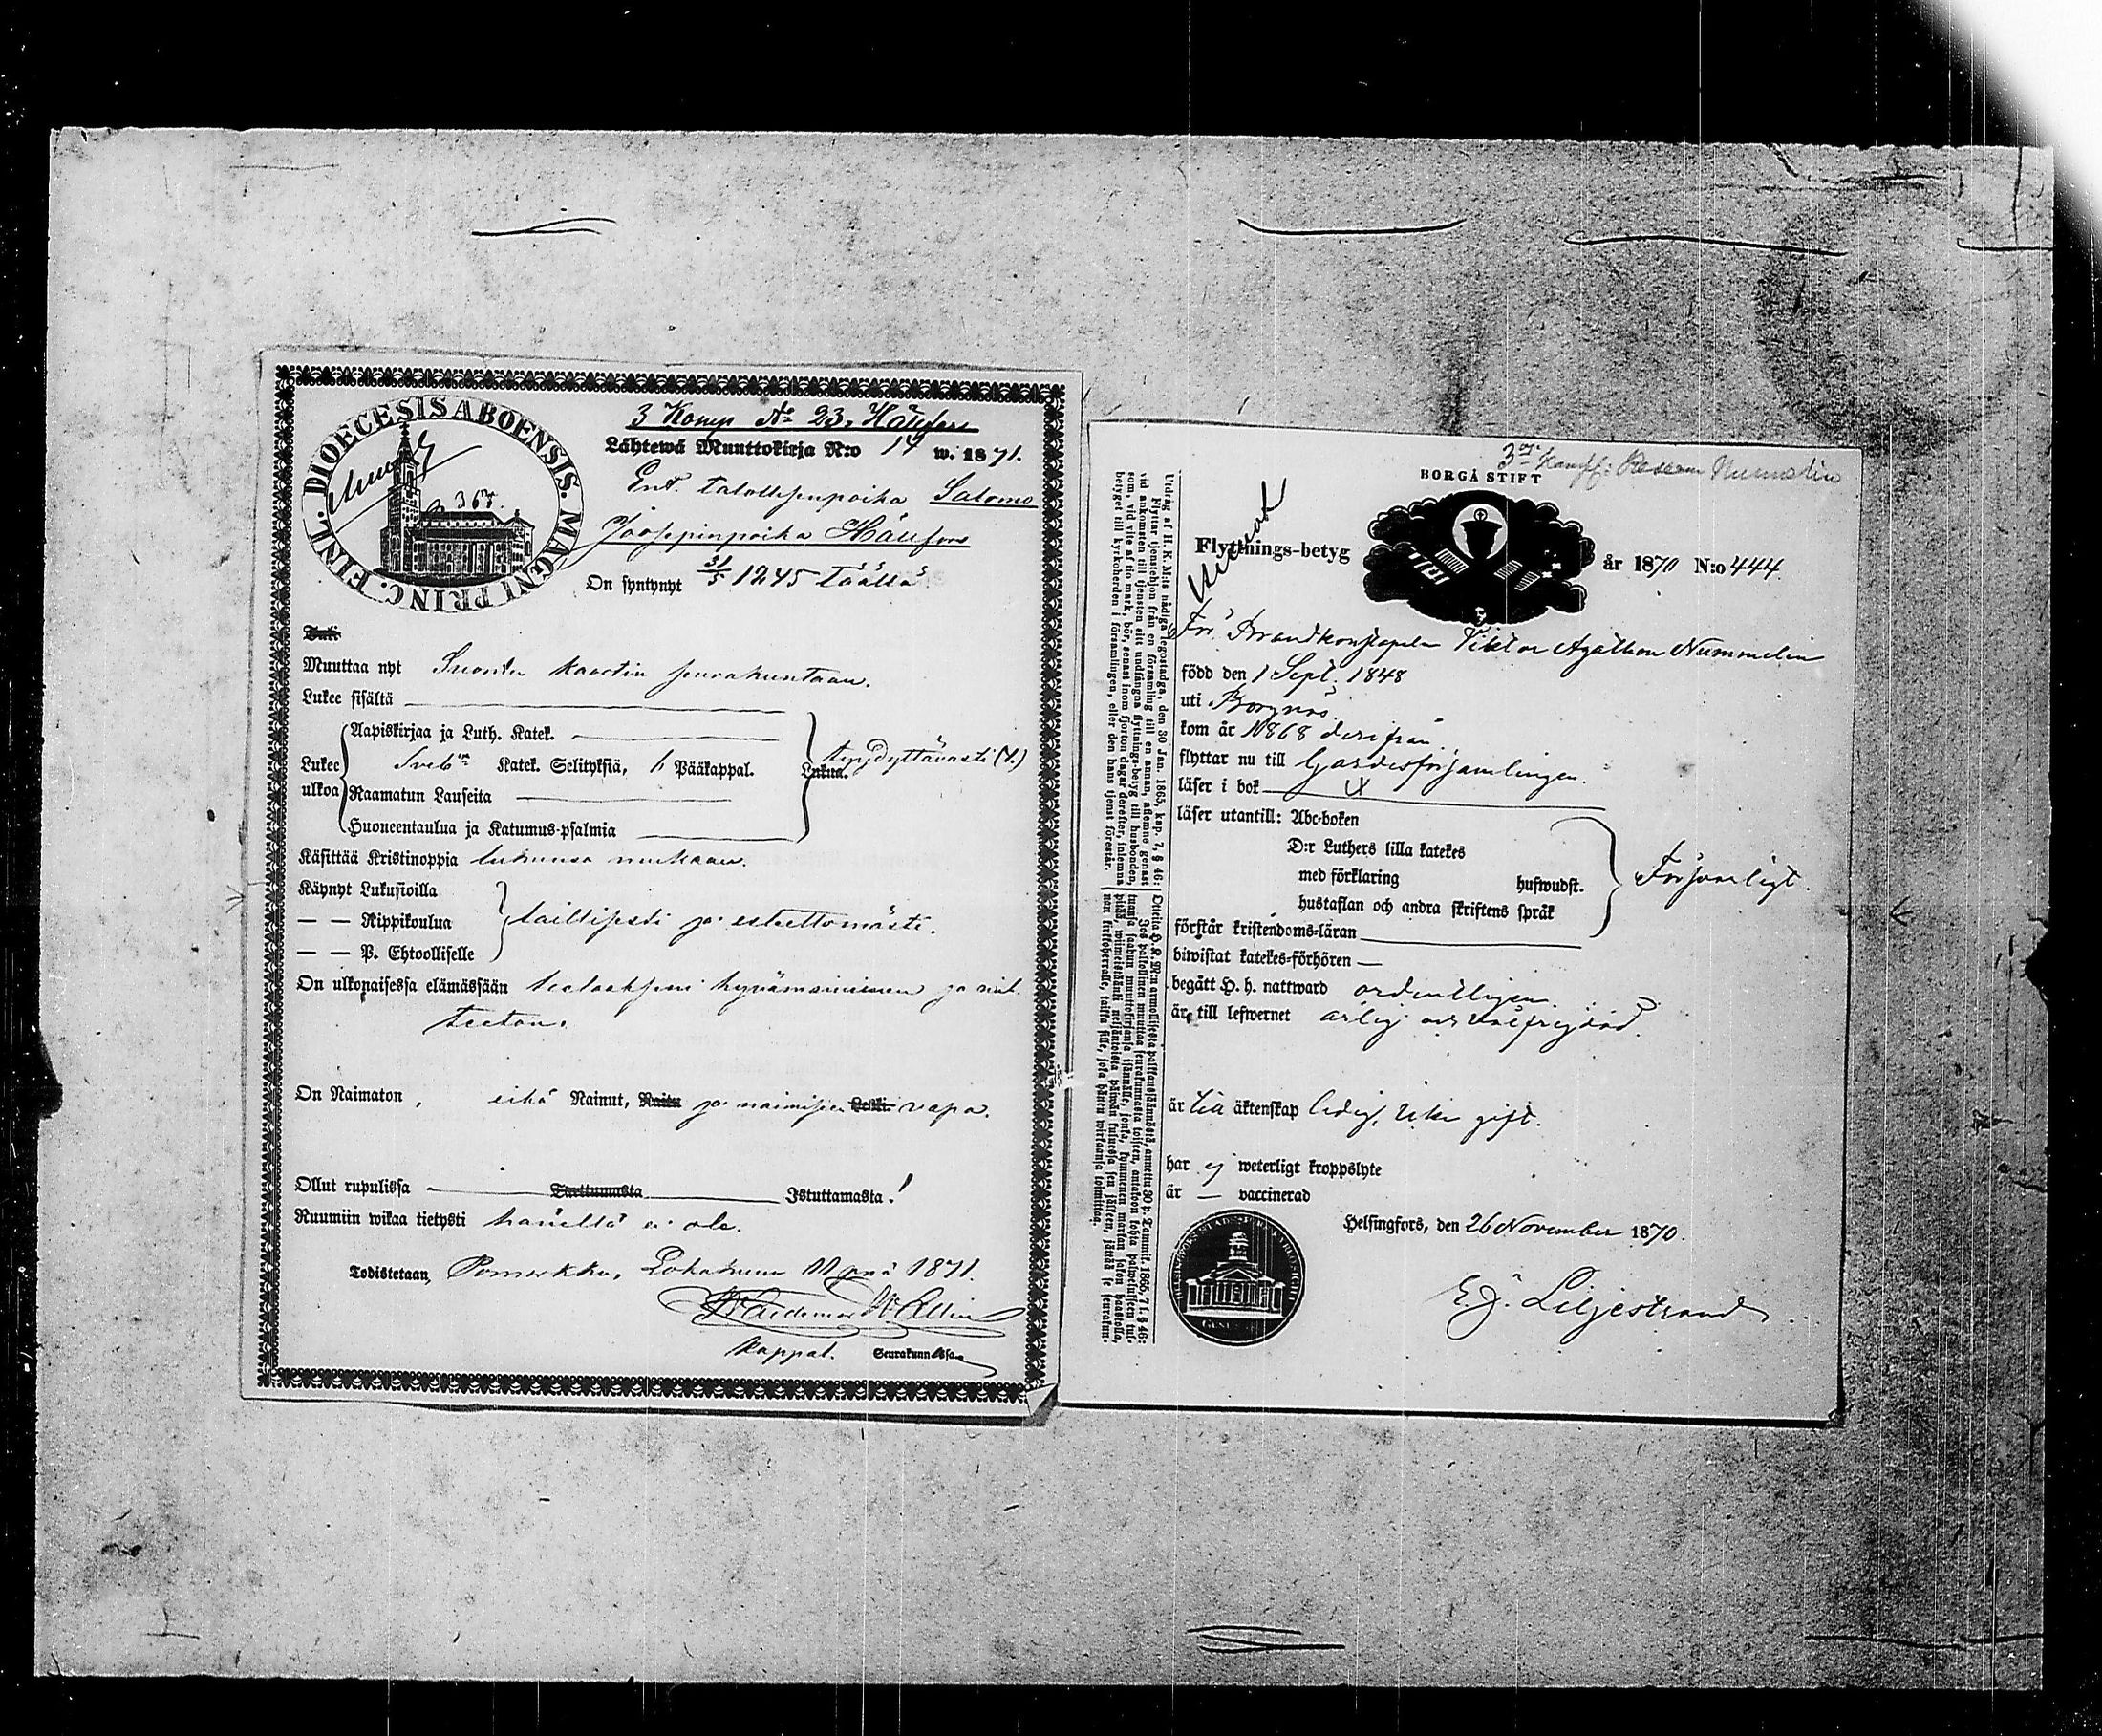 DIOECESIS ABOENSIS. MAGNI PRINC. FINL.
367.
3 Komp No 23. Hänfors
Lähtewä Muuttokirja N:o 14 w. 1871.
Ent. talollisenpoika Salomo
Joosepinpoika Hänfors
On syntynyt 31/5 1845 täällä
Tuli
Muuttaa nyt Suomen kaartin seurakuntaan.
Lukee sisältä
Lukee ulkoa
Aapiskirjaa ja Luth. Katek.
Sveb:n Katek. Selityksiä, 6 Pääkappal.
Raamatun Lauseita
Huoneentaulua ja Katumus-psalmia
Lukua.
tyydyttävästi (t.)
Käsittää Kristinoppia lukunsa mukaan.
Käynyt Lukusioilla
— — Rippikoulua
— — P. Ehtoolliselle
laillisesti ja esteettomästi.
On ulkonaisessa elämässään tietääkseni hyvämaineinen ja viat-
teeton.
On Naimaton, eikä Nainut, Naitu ja naimiseen Leski vapa.
Ollut rupulissa Tarttumasta Istuttamasta!
Ruumiin wikaa tietysti hänellä ei ole.
Todistetaan, Pomarkku, Lokakuun 11 pnä 1871.
Kappal. Seurakunnassa
3je Komp: Nummelin
BORGÅ STIFT
Flyttnings-betyg år 1870 N:o 444.
För Brandkonstapeln Viktor Agathon Nummelin
född den 1 Sept. 1848
uti Borgnäs
kom år 1868 derifrån
flyttar nu till Gardesförsamlingen.
läser i bok
läser utantill: Abc-boken
D:r Luthers lilla katekes
med förklaring hufwudst.
hustaflan och andra skriftens språk
Försvarligt.
förstår kristendoms-läran
biwistat katekes-förhören —
begått H. h. nattward ordentligen.
är, till lefwernet ärlig och välfrejdad.
är till äktenskap ledig, icke gift.
har ej weterligt kroppslyte
är — vaccinerad
Helsingfors, den 26 November 1870.
E. J. Liljestrand
Utdrag af H. K. M:ts nådiga legostadga, den 30 Jan. 1865, kap. 7, § 46:
Flyttar tjenstehjon från en församling till en annan, aflemne genast
vid ankomsten till tjensten sitt undfångna flyttnings-betyg till husbonden,
som, vid vite af tio mark, bör, senast inom fjorton dagar derefter, inlemna
betyget till kyrkoherden i församlingen, eller den hans tjenst förestår.